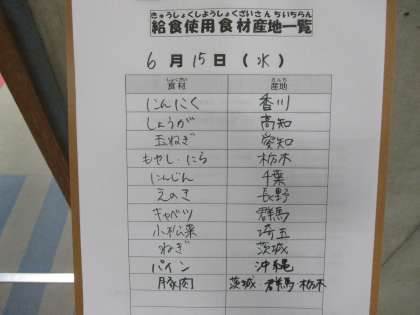 きゅうしょくしようしょくざいさんちいちらん
給食使用食材産地一覧
6月15日(水)
しょくざい さんち
食材 産地
にんにく 香川
しょうが 高知
玉ねぎ 愛知
もやし・にら 栃木
にんじん 千葉
えのき 長野
キャベツ 群馬
小松菜 埼玉
ねぎ 茨城
パイン 沖縄
豚肉 茨城 群馬 栃木